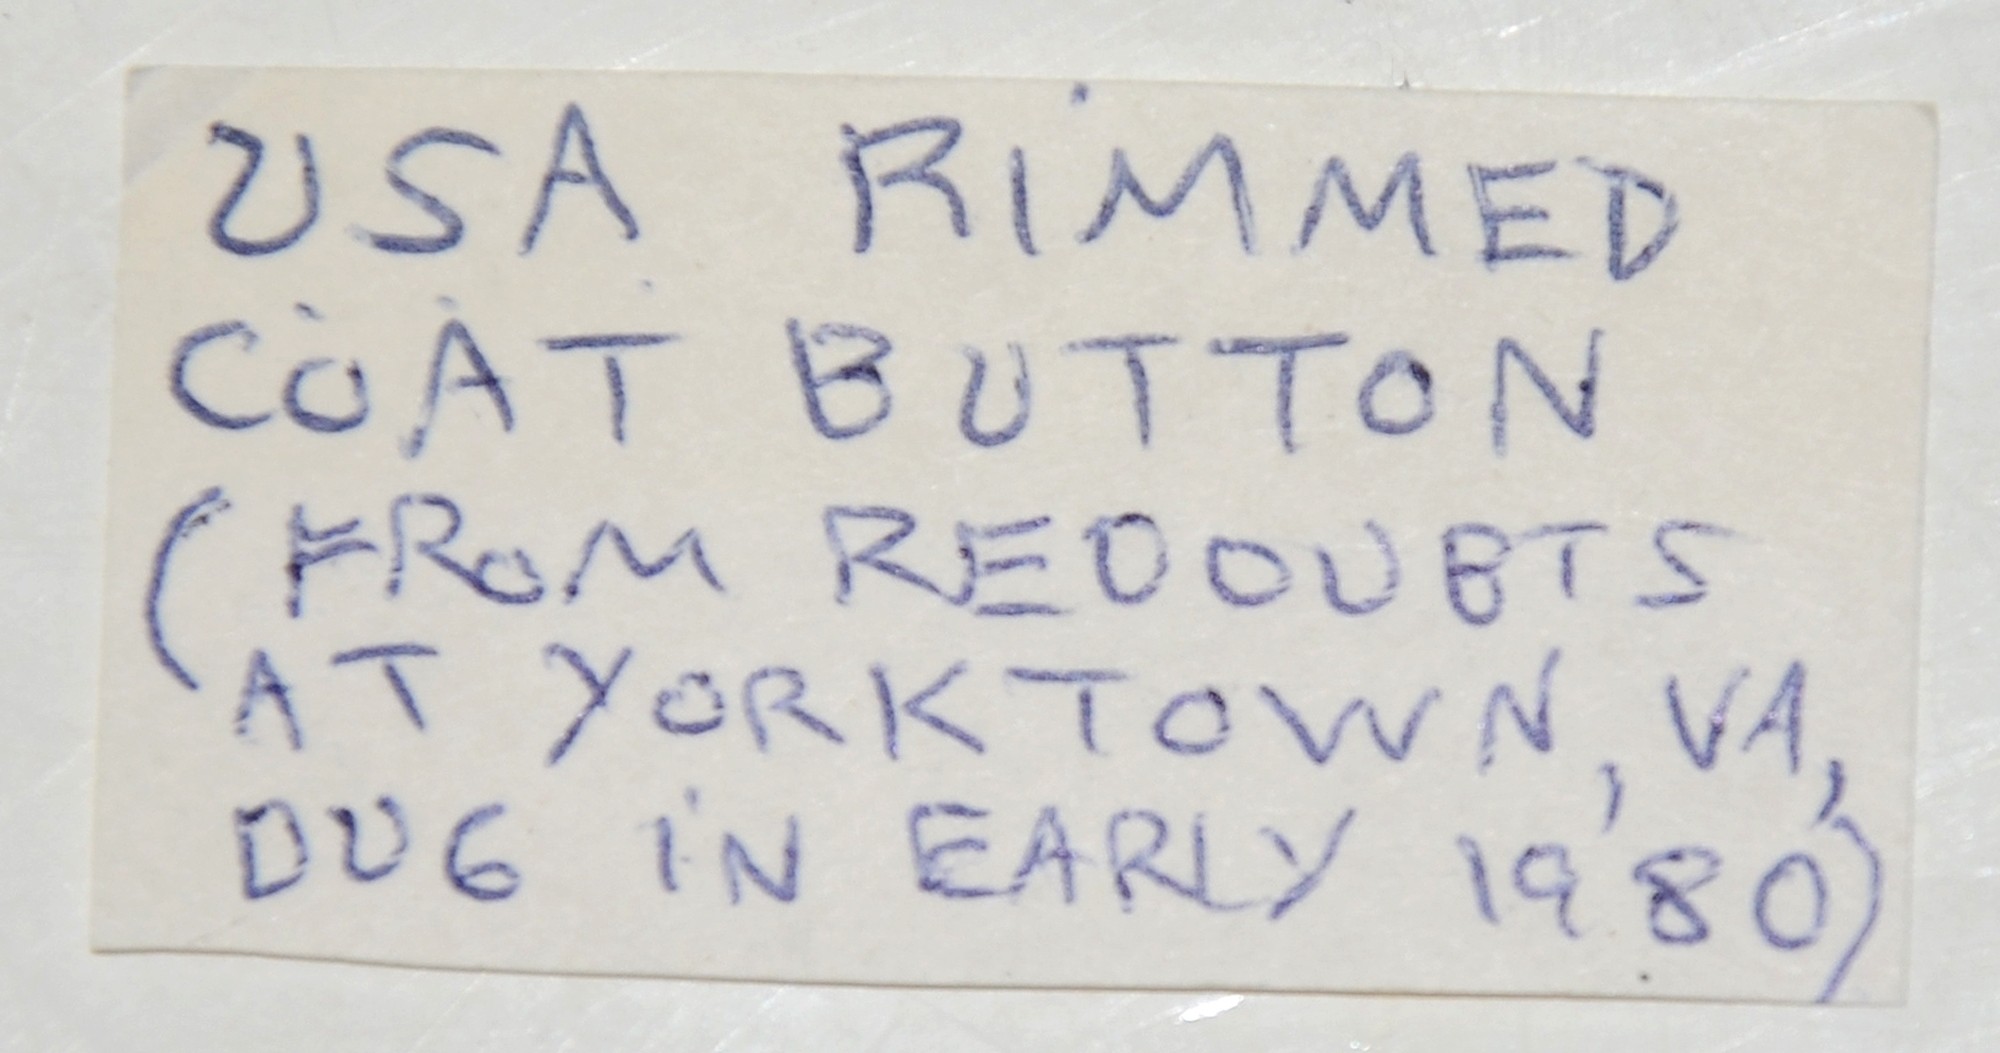 USA RIMMED
COAT BUTTON
(FROM REDOUBTS
AT YORKTOWN, VA,
DUG IN EARLY 1980)